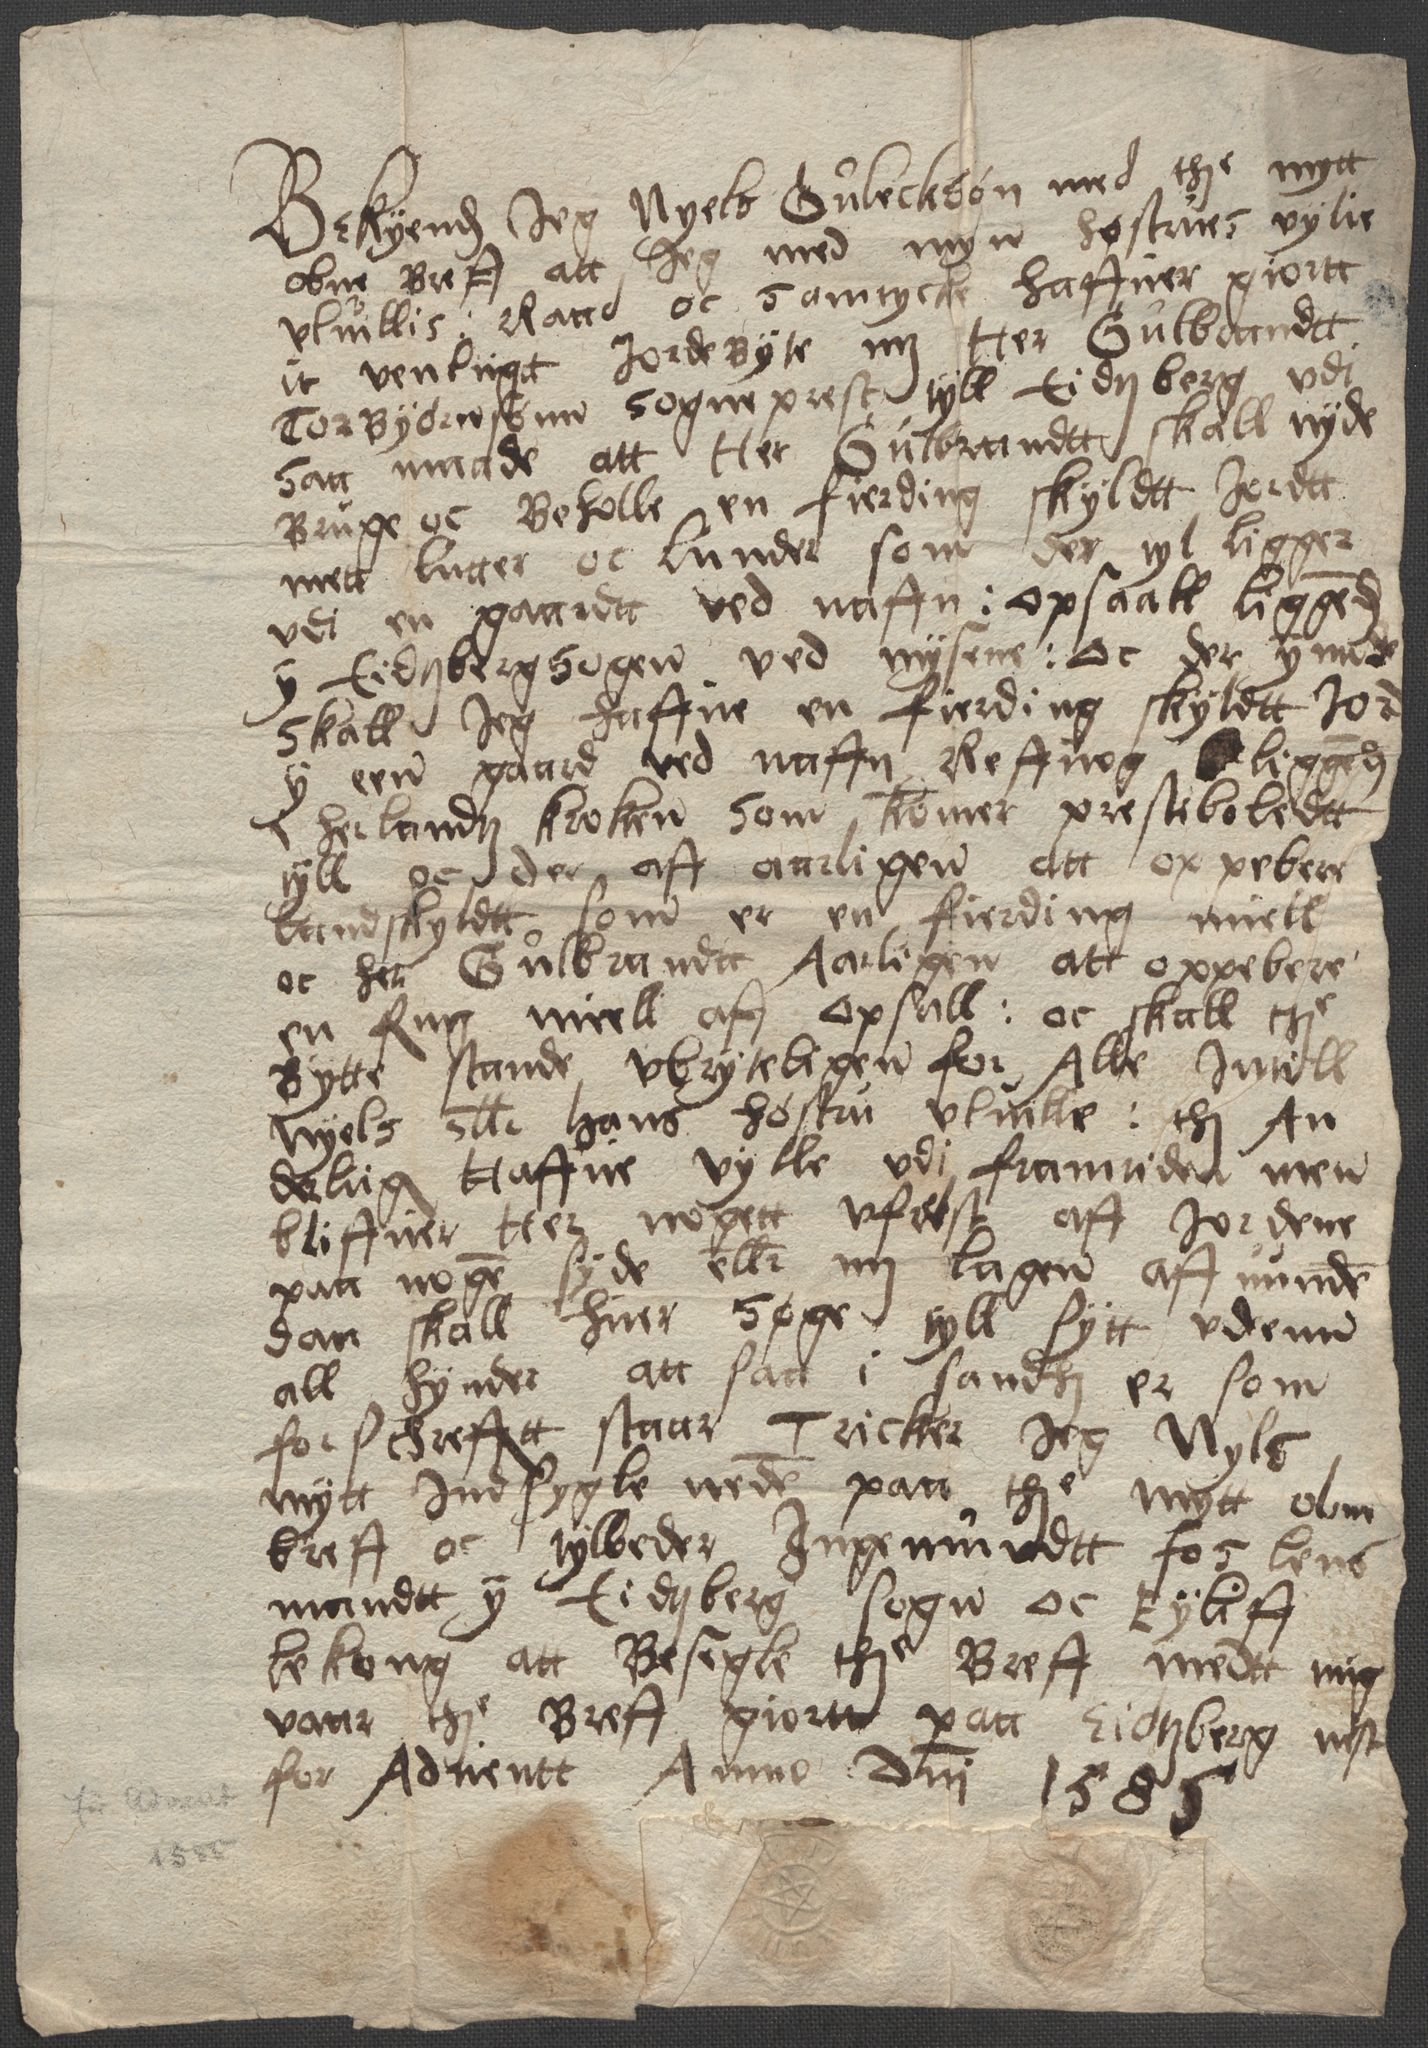 Bekyend Jeg Nyels Gůlecksøn med the mytt
obne Breff att Jeg med myn høstrues vylie
vluillis: Raad oc samtycke haffuer giortt
it venligtt Jordebyte mz Her Gůlbrandtt
Torbyørnsønn sogneprest tyll Eidzberg vdi
saa maade att Her Gůlbrandtt skall nyde
Bruge oc Beholle en fierding skyldtt Jordtt
mett lutter oc lunder som der tyl ligger
vdi en gaardtt ved naffn: opsaall liggend
ÿ Eidzbergsogen ved mÿsene: oc der ÿmode
skall Jeg haffue en fierding skyldtt Jord
ÿ een gaard ved naffn Reffuog liggend
i herlandz kroken som komer presteboledtt
tyll oc der aff aarligen att oppebere
landskyldtt som er en fierding miell
oc her Gůlbrandtt Aarligen att oppebere
en miell aff opsall: oc skall the
Bytte stande vbryteligen for Alle Intill
Nÿels ellr hans høstru vluille: th An
derlug Haffue vylle vdi framtiden men
bliffuer Her nogett vfrelst aff Jordene
paa noge syde ellr mz lagen affuunde
daa skall huer søge tyll sytt vdenn
all hÿnder att saa i sandh er som
forschreffuit staar Tricker Jeg Nyls
mytt Indsygle nede paa the mytt obne
breff oc tylbeder Ingemůndtt fos lens
mandtt ÿ Eidzberg sogn oc Eÿliff
lekong att Besegle the Breff medtt mig
vaar the Breff giortt paa Eidzberg nest
for Aduentt Anno Dni 1585
für Advent
1585